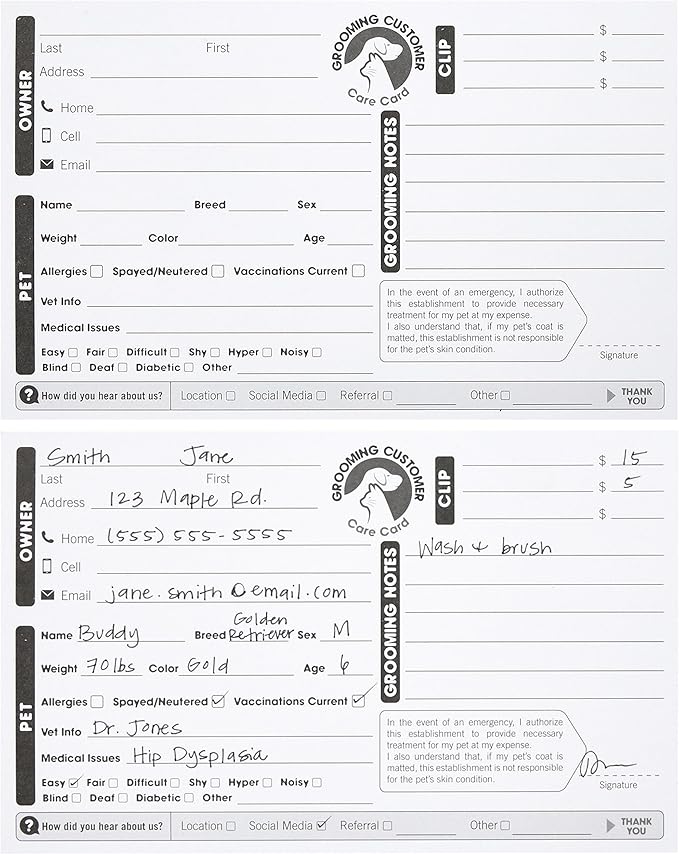 OWNER
Last First
Address
Home
Cell
Email
GROOMING CUSTOMER
Care Card
CLIP
$
$
$
GROOMING NOTES
PET
Name Breed Sex
Weight Color Age
Allergies Spayed/Neutered Vaccinations Current
Vet Info
Medical Issues
Easy Fair Difficult Shy Hyper Noisy
Blind Deaf Diabetic Other
In the event of an emergency, I authorize
this establishment to provide necessary
treatment for my pet at my expense.
I also understand that, if my pet's coat is
matted, this establishment is not responsible
for the pet's skin condition.
Signature
? How did you hear about us? Location Social Media Referral Other THANK
YOU
OWNER
Smith Jane
Last First
Address 123 Maple Rd.
Home (555) 555-5555
Cell
Email jane.smith@email.com
GROOMING CUSTOMER
Care Card
CLIP
$ 15
$ 5
$
GROOMING NOTES
Wash & brush
PET
Name Buddy Breed Golden
Retriever Sex M
Weight 70lbs Color Gold Age 6
Allergies Spayed/Neutered Vaccinations Current
Vet Info Dr. Jones
Medical Issues Hip Dysplasia
Easy Fair Difficult Shy Hyper Noisy
Blind Deaf Diabetic Other
In the event of an emergency, I authorize
this establishment to provide necessary
treatment for my pet at my expense.
I also understand that, if my pet's coat is
matted, this establishment is not responsible
for the pet's skin condition.
Signature
? How did you hear about us? Location Social Media Referral Other THANK
YOU